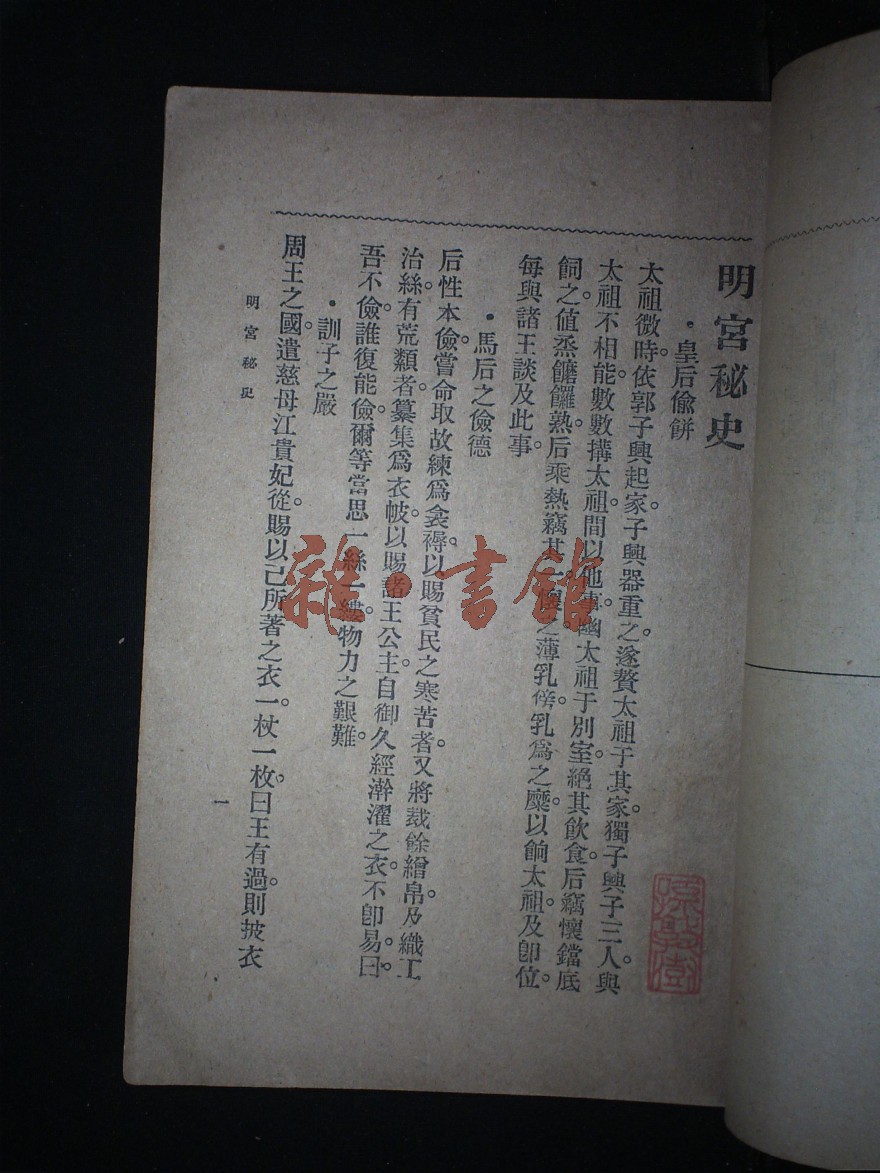 明宮秘史
・皇后偸餅
太祖微時。依郭子興起家。子興器重之。遂贅太祖于其家。獨子興子三人。與
太祖不相能。數數搆太祖。間以他事。幽太祖于別室。絕其飲食。后竊懷鐺底
飼之。值蒸饝饠熟。后乘熱竊其一。懷之薄乳。傍乳爲之糜。以餉太祖。及卽位。
每與諸王談及此事。
・馬后之儉德
后性本儉。嘗命取故練爲衾褥。以賜貧民之寒苦者。又將裁餘繒帛。及織工
治絲。有荒纇者。纂集爲衣帔。以賜諸王公主。自御久經澣濯之衣。不卽易。曰。
吾不儉。誰復能儉。爾等當思一絲一縷。物力之艱難。
・訓子之嚴
周王之國。遣慈母江貴妃從。賜以己所著之衣一。杖一枚。曰。王有過。則披衣
明宮秘史
一
雜・書館